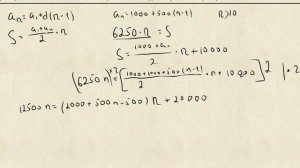 aₙ = a₁ + d(n-1)    aₙ = 1000 + 500(n-1)    n > 10
S = (a₁ + aₙ)/2 · n    6250 · n = S
S = (1000 + aₙ)/2 · n + 10000
(6250n)^{×2} = [(1000 + 1000 + 500(n-1))/2 · n + 10000]2 | · 2
12500n = (2000 + 500n - 500) n + 20000